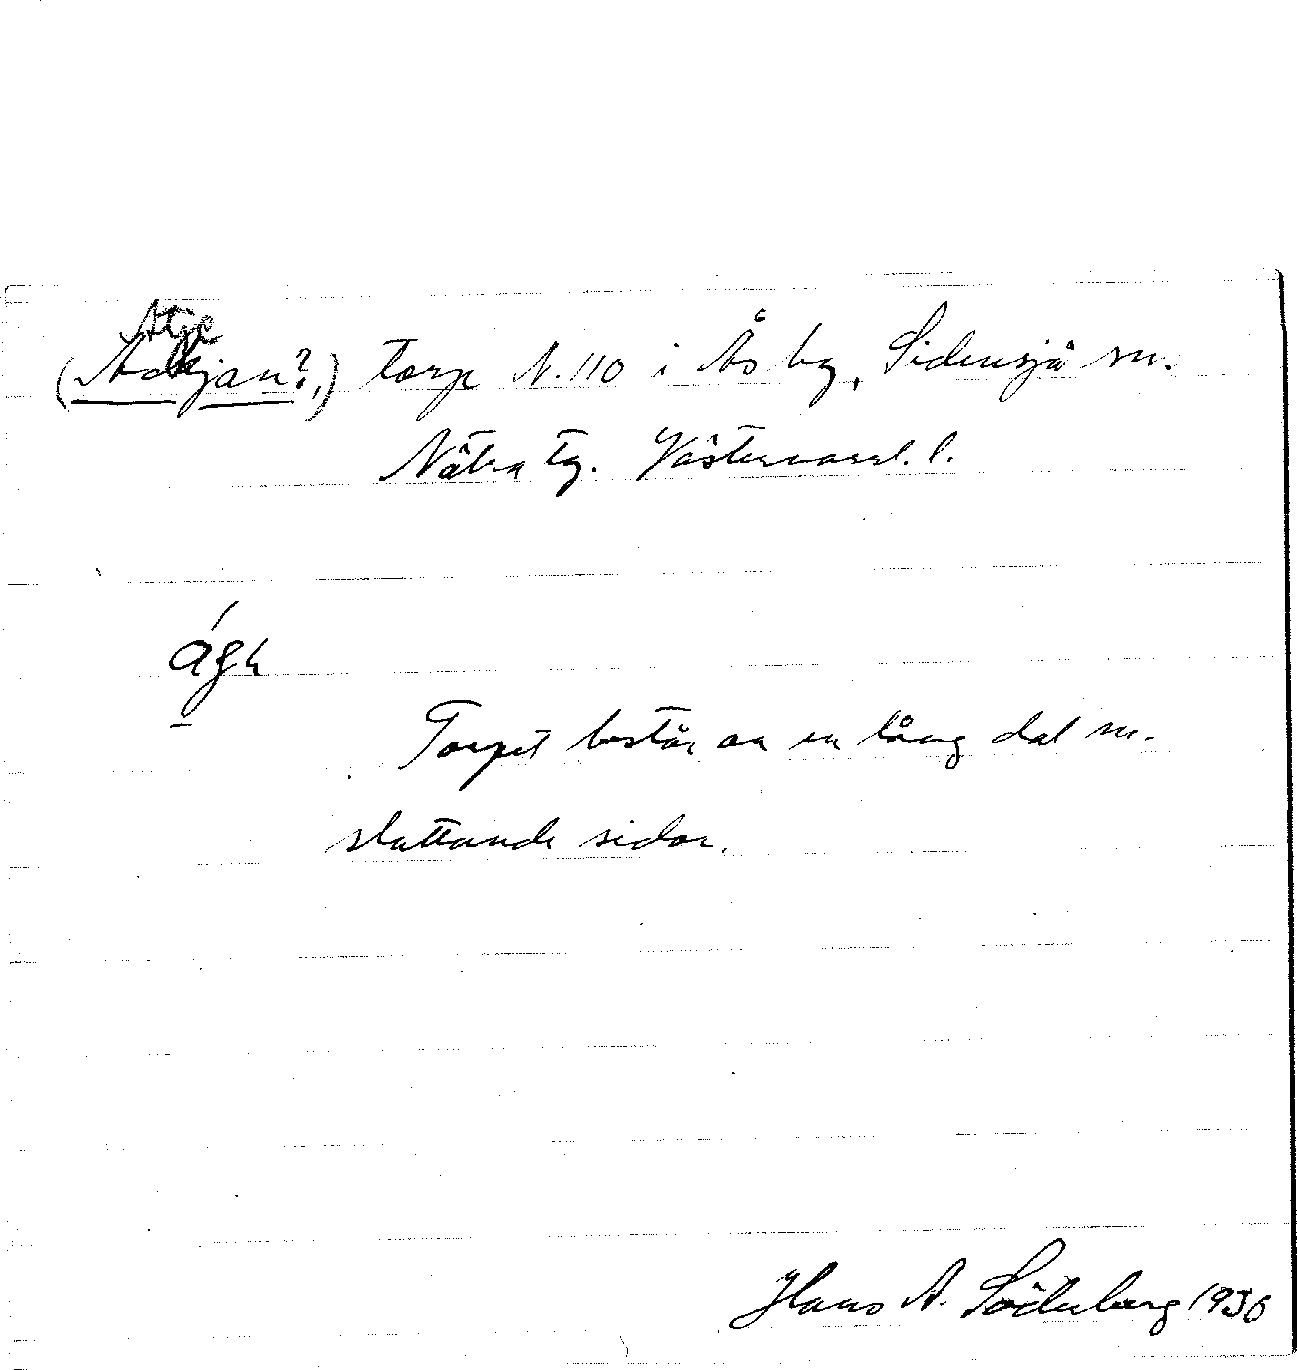 Torp N. 110 i Ås by, Sidensjö sn.
Nätra tg. Västernorrl. l.
Torpet består av en lång dal m.
sluttande sidor.
Hans A. Söderberg 1936